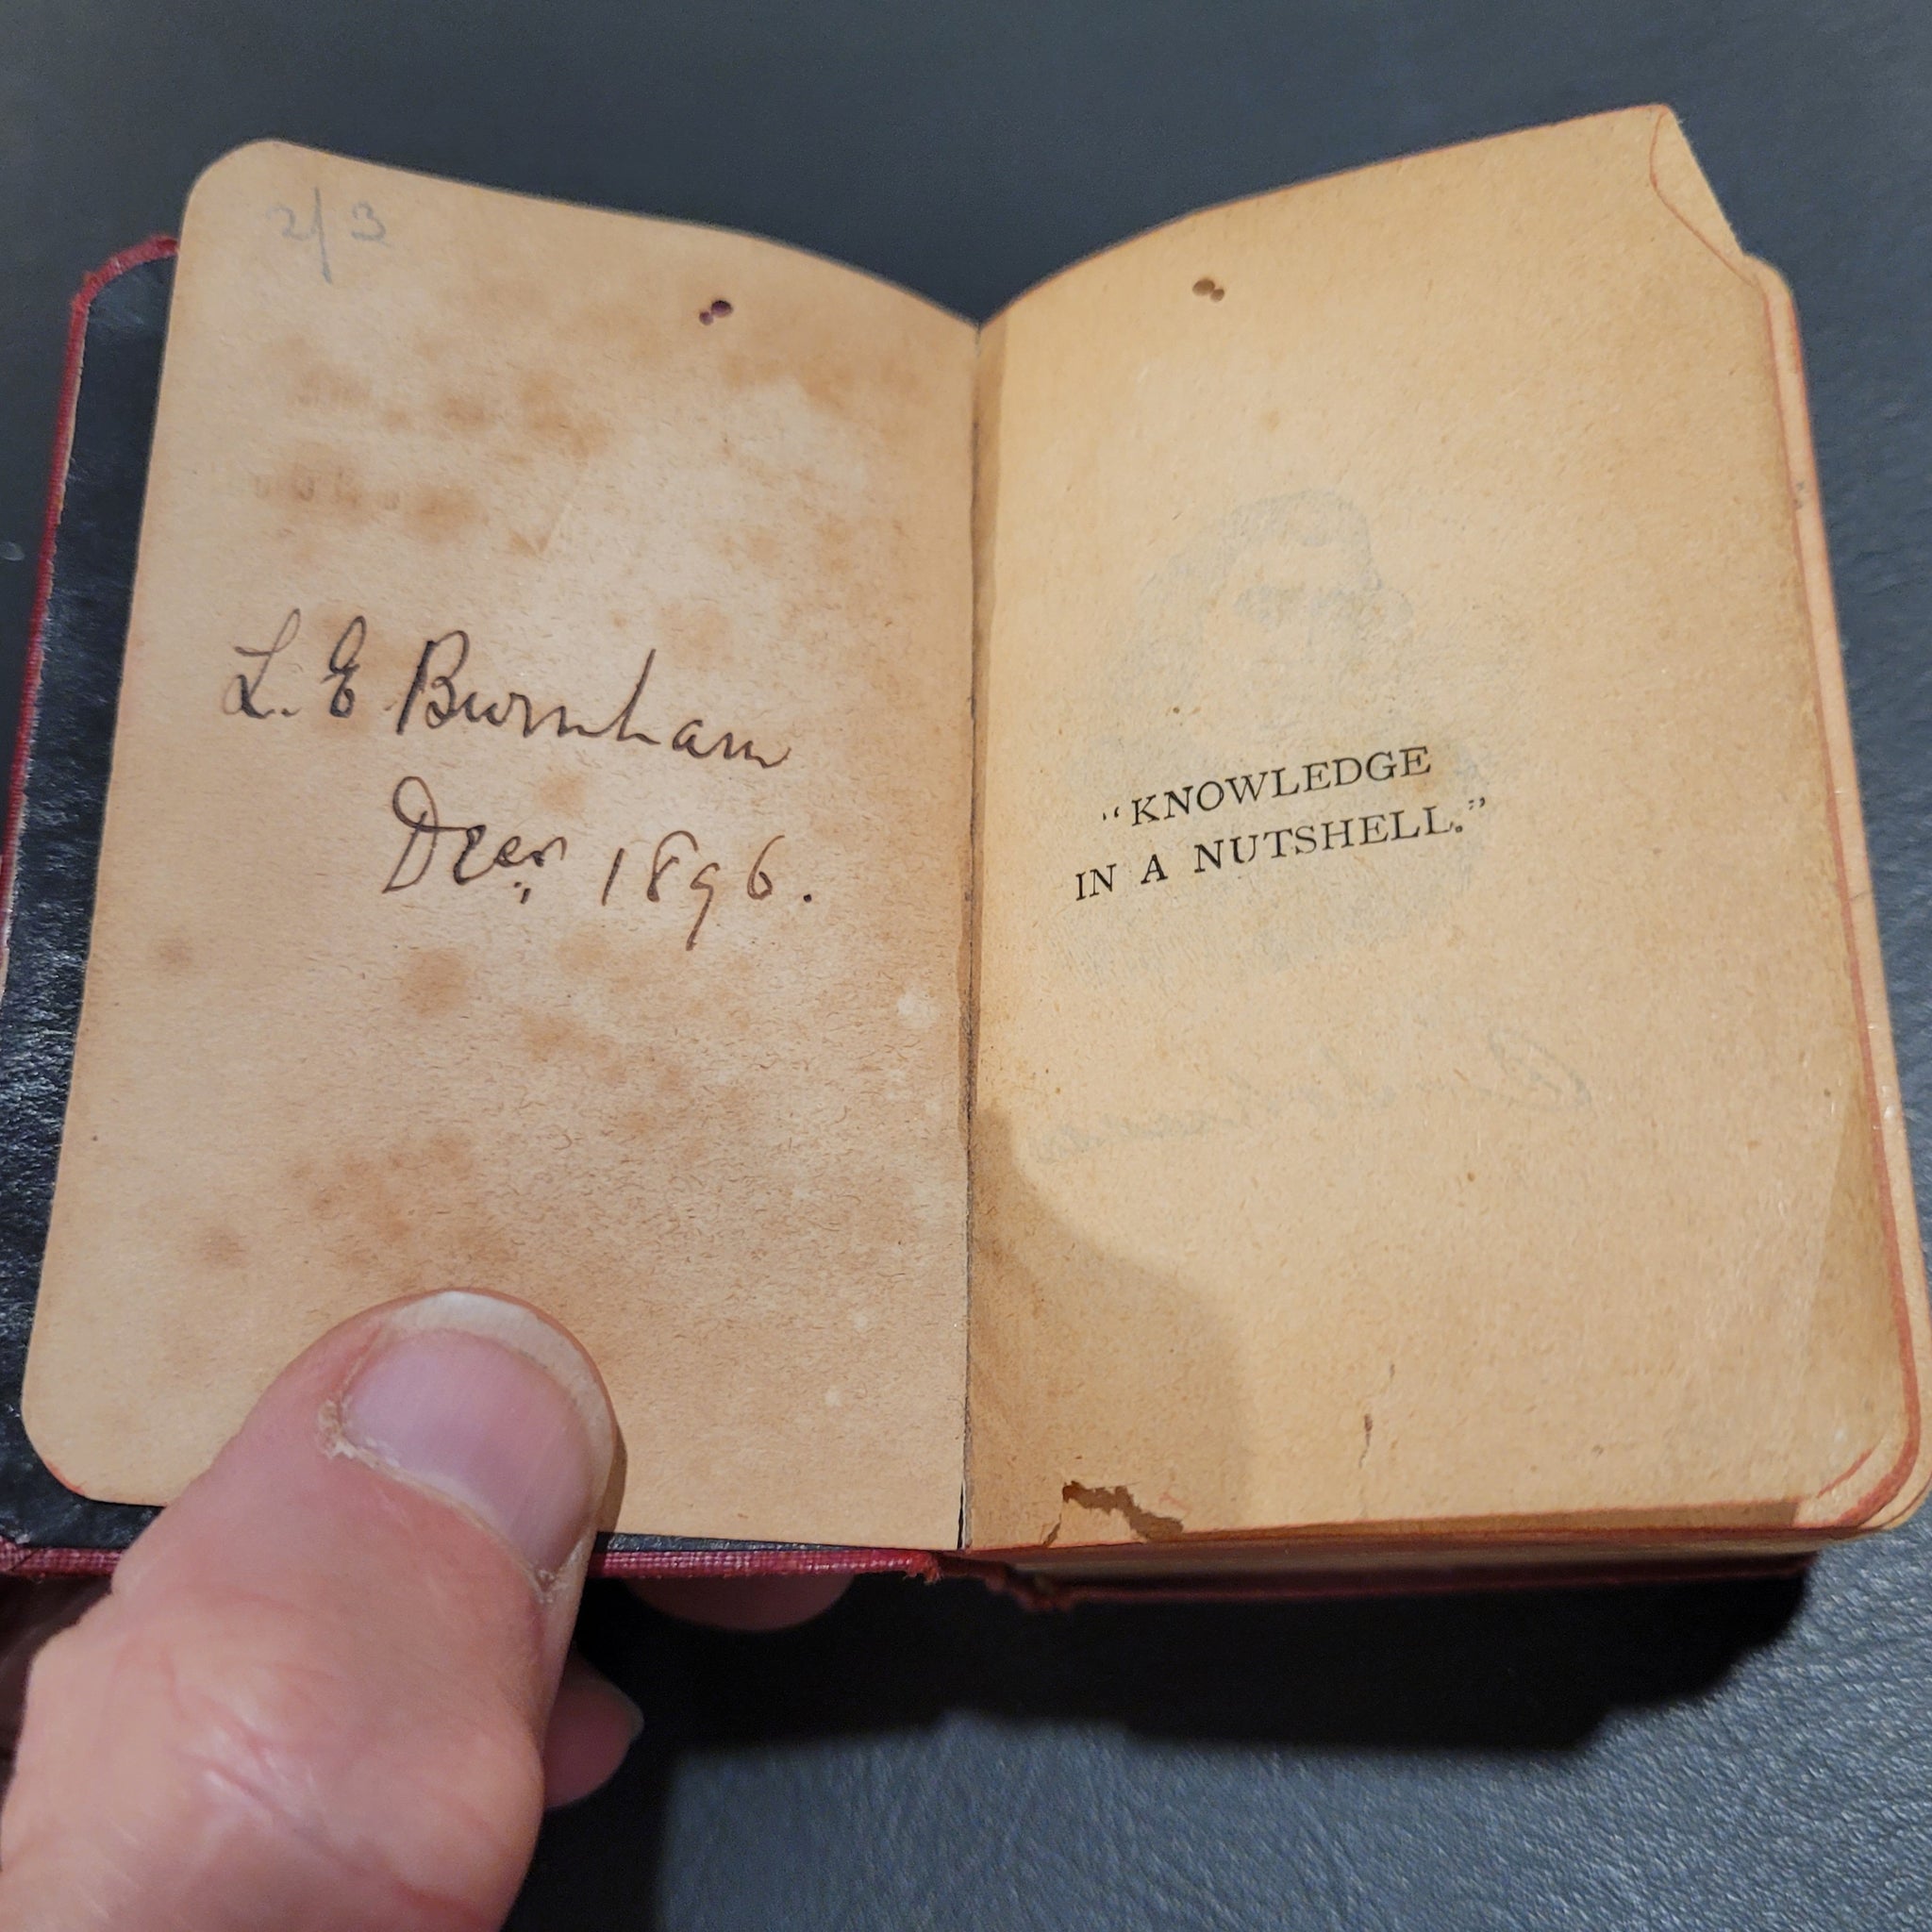 2/3
L. E Burnham
Decr. 1896.
"KNOWLEDGE
IN A NUTSHELL."